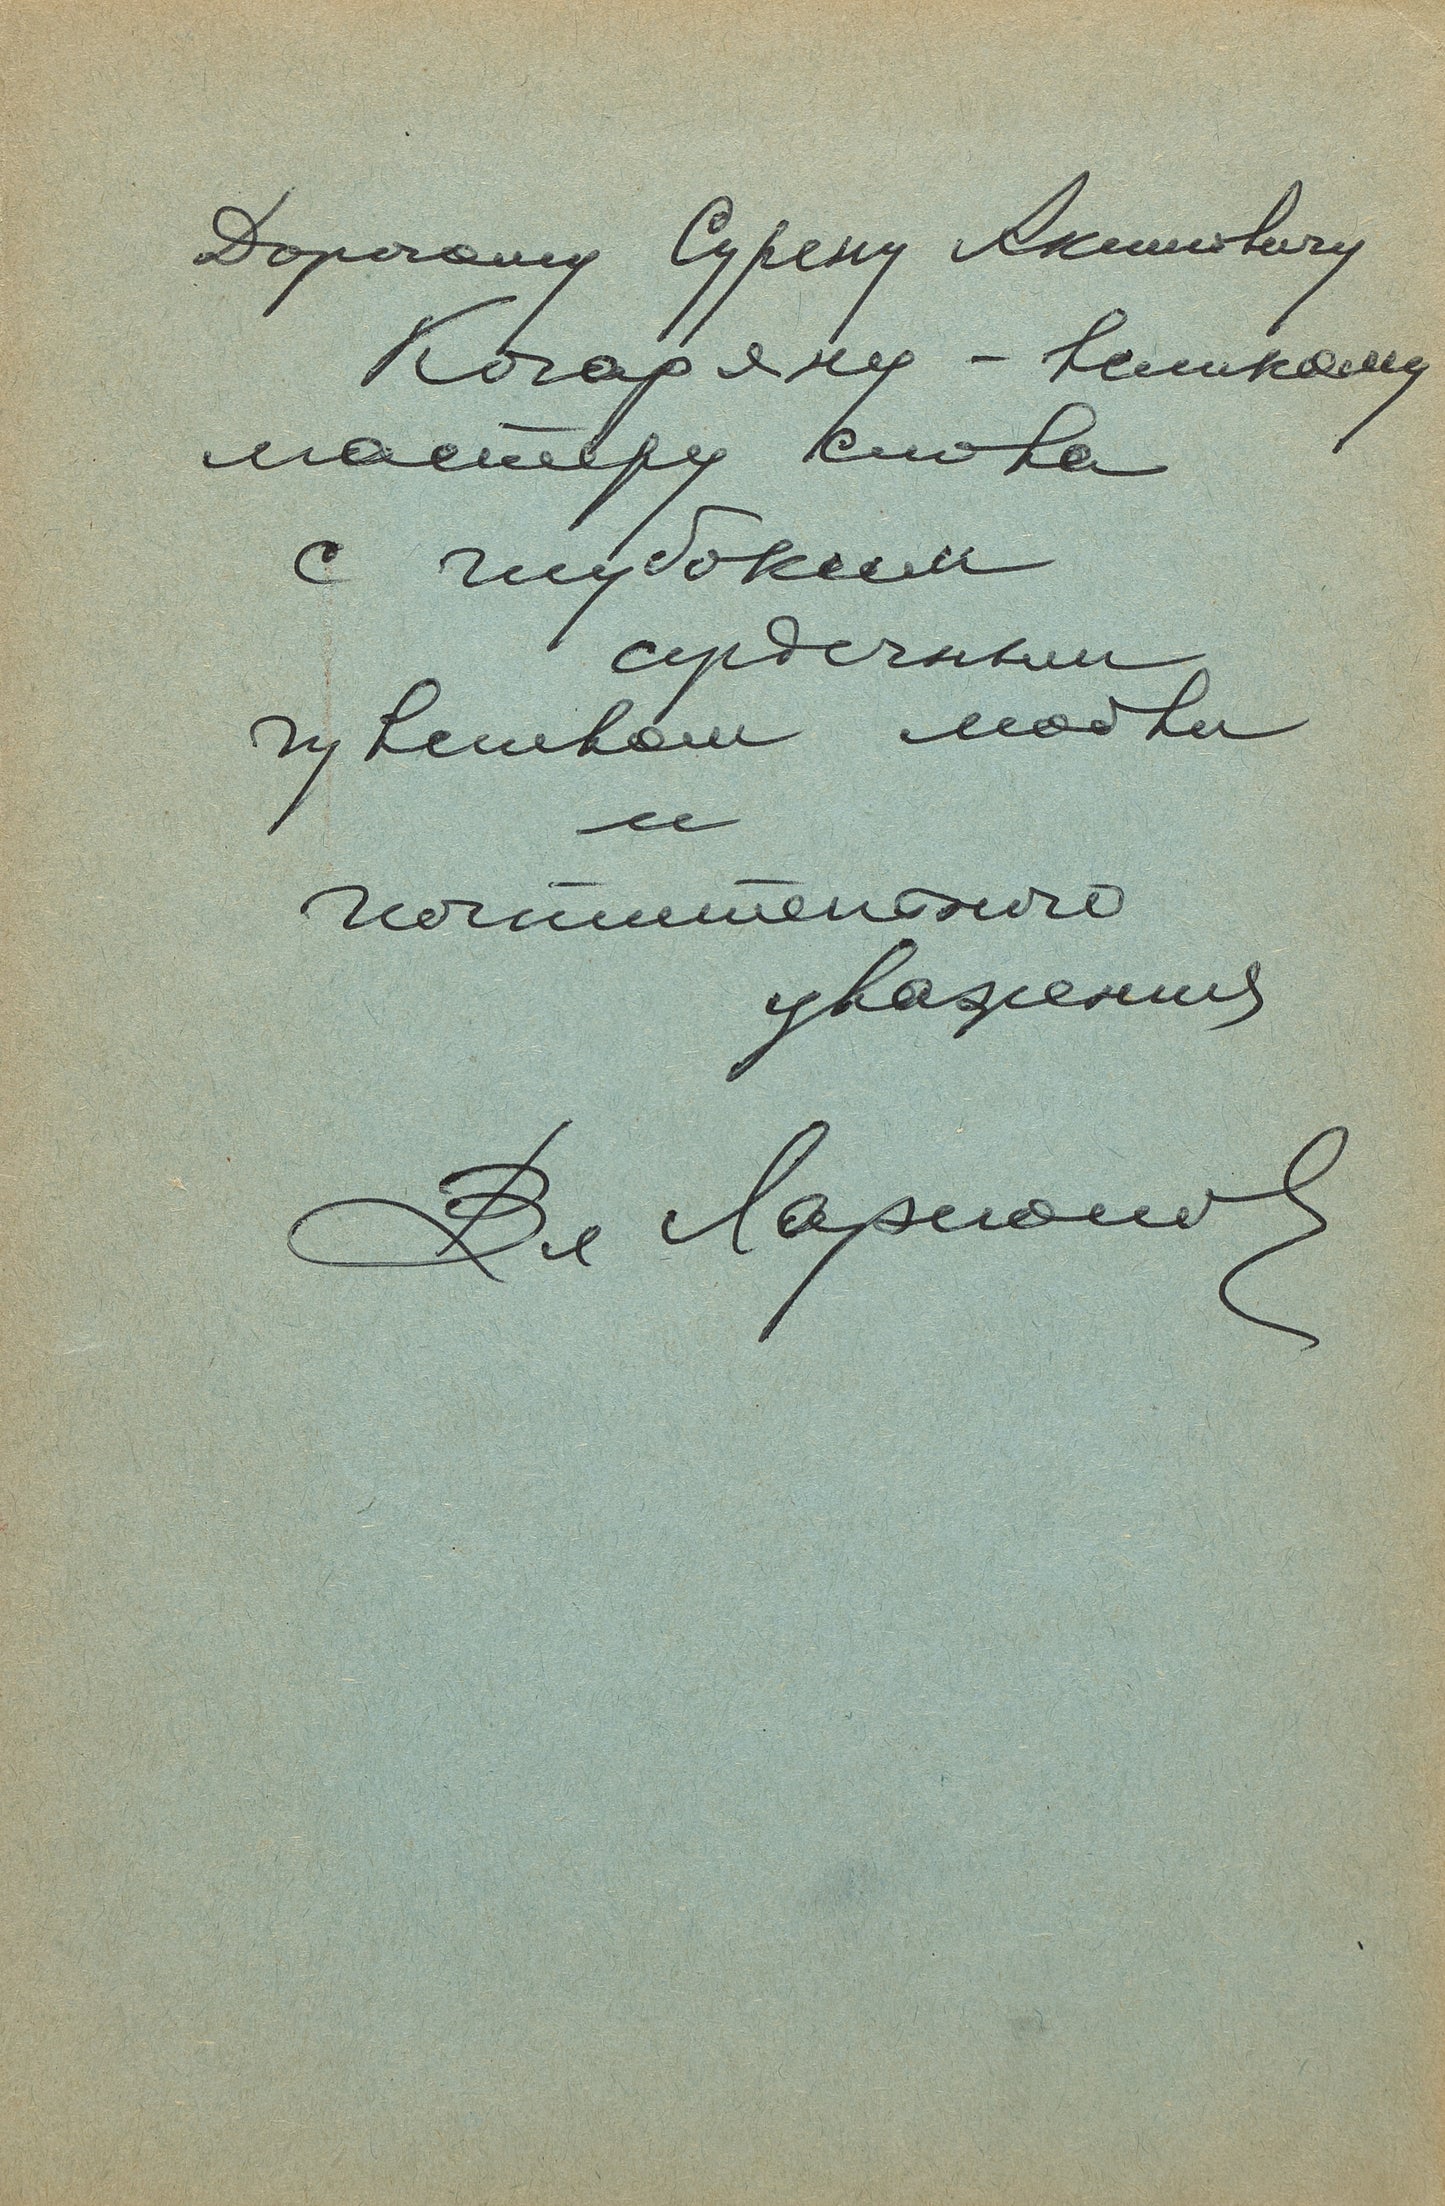 Дорогому Сурену Акимовичу
Кочаряну – великому
мастеру слова
с глубоким
сердечным
чувством любви
и
почтительного
уважения
Вл Ларионов